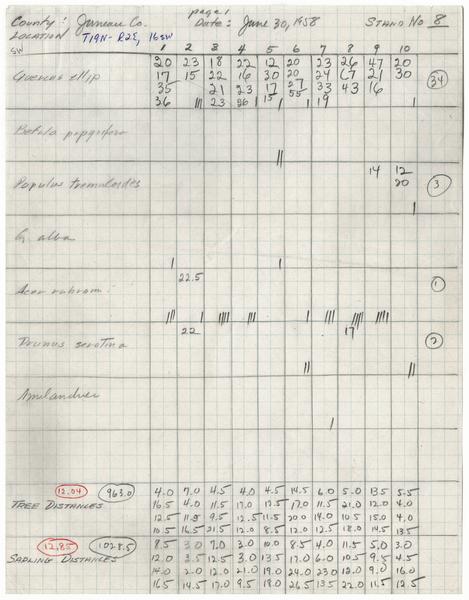 page 1
County: Juneau Co. Date: June 30, 1958 STAND No 8
LOCATION T19N-R2E, 16SW
SW 1 2 3 4 5 6 7 8 9 10
Quercus ellip 20 23 18 22 12 20 23 26 47 20
17 15 22 16 30 20 24 67 21 30 34
35 21 23 17 27 33 43 16
36 23 26 15 55 19
Betula papyrifera
Populus tremuloides 14 12
20 3
Q. alba
22.5
Acer rubrum 1
22 17
Prunus serotina 2
Amelanchier
12.04 963.0 4.0 7.0 4.5 4.0 4.5 14.5 6.0 5.0 13.5 5.5
TREE DISTANCES 16.5 4.0 11.5 17.0 12.5 17.0 11.5 21.0 12.0 4.0
12.5 11.5 9.5 12.5 11.5 20.0 14.0 10.5 15.0 4.0
10.5 16.5 21.5 12.0 8.5 12.0 12.5 18.0 14.5 13.5
12.85 1028.5 8.5 3.0 7.0 3.0 10.0 8.5 4.0 11.5 5.0 3.0
SAPLING DISTANCES 12.0 3.5 12.5 3.0 13.5 17.0 6.0 10.5 9.5 4.5
14.0 2.0 12.0 21.0 19.0 24.0 23.0 12.0 9.0 16.0
16.5 14.5 17.0 9.5 18.0 26.5 13.5 22.0 11.5 12.5